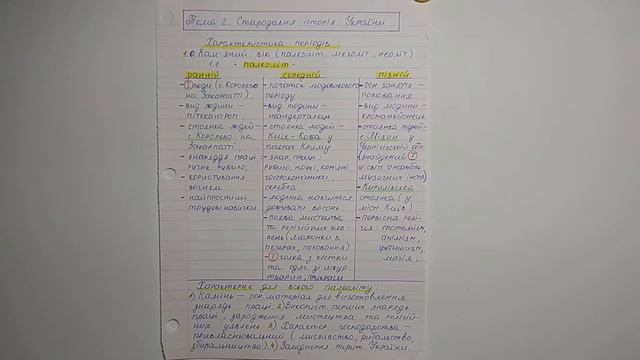 Тема 2. Стародавня історія України
Характеристика періодів:
1.0 Кам'яний вік (палеоліт, мезоліт, неоліт)
1.1 • палеоліт •
ранній
- ① люди (с Королево
на Закарпатті),
- вид людини -
пітекантроп,
- стоянка людей -
с Королево на
Закарпатті,
- знаряддя праці:
ручне рубило,
- користування
вогнем
- найпростіші
трудові навички
середній
- початок льодовикового
періоду
- вид людини -
неандерталец
- стоянка людей -
Киїк-Коба у
печерах Криму
- знар. праці:
рубило, ножі, кам'яні
гостроконечники,
скребла
- людина навчилася
добувати вогонь
- поява мистецтва
та релігійних уяв-
лень (малюнки в
печерах, поховання)
- ① голка з кістки
та одяг зі шкур
тварин, прикраси
пізній
- осн. заняття -
полювання
- вид людини -
кроманьйонець
- стоянка людей -
с. Мізин у
Чернігівській обл.
(знайдений ①
у світі ансамбль
музичних інстр)
- Кирилівська
стоянка (у
місті Київ)
- первісна рел-
ігія: тотемізм,
анімізм,
фетишизм,
магія;
Характерне для всього палеоліту:
1) Камінь - осн. матеріал для виготовлення
знарядь праці 2) Використ. перших знарядь
праці, зародження мистецтва та релігій-
них уявлень 3) Характер господарства -
привласнювальний (мисливство, рибальство,
збиральництво) 4) Заселення терит. України.